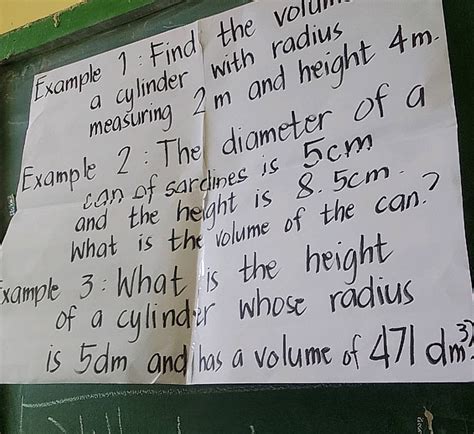 Example 1: Find the volum
a cylinder with radius
measuring 2m and height 4m.
Example 2: The diameter of a
can of sardines is 5cm
and the height is 8.5cm.
What is the volume of the can?
xample 3: What is the height
of a cylinder whose radius
is 5dm and has a volume of 471 dm³?